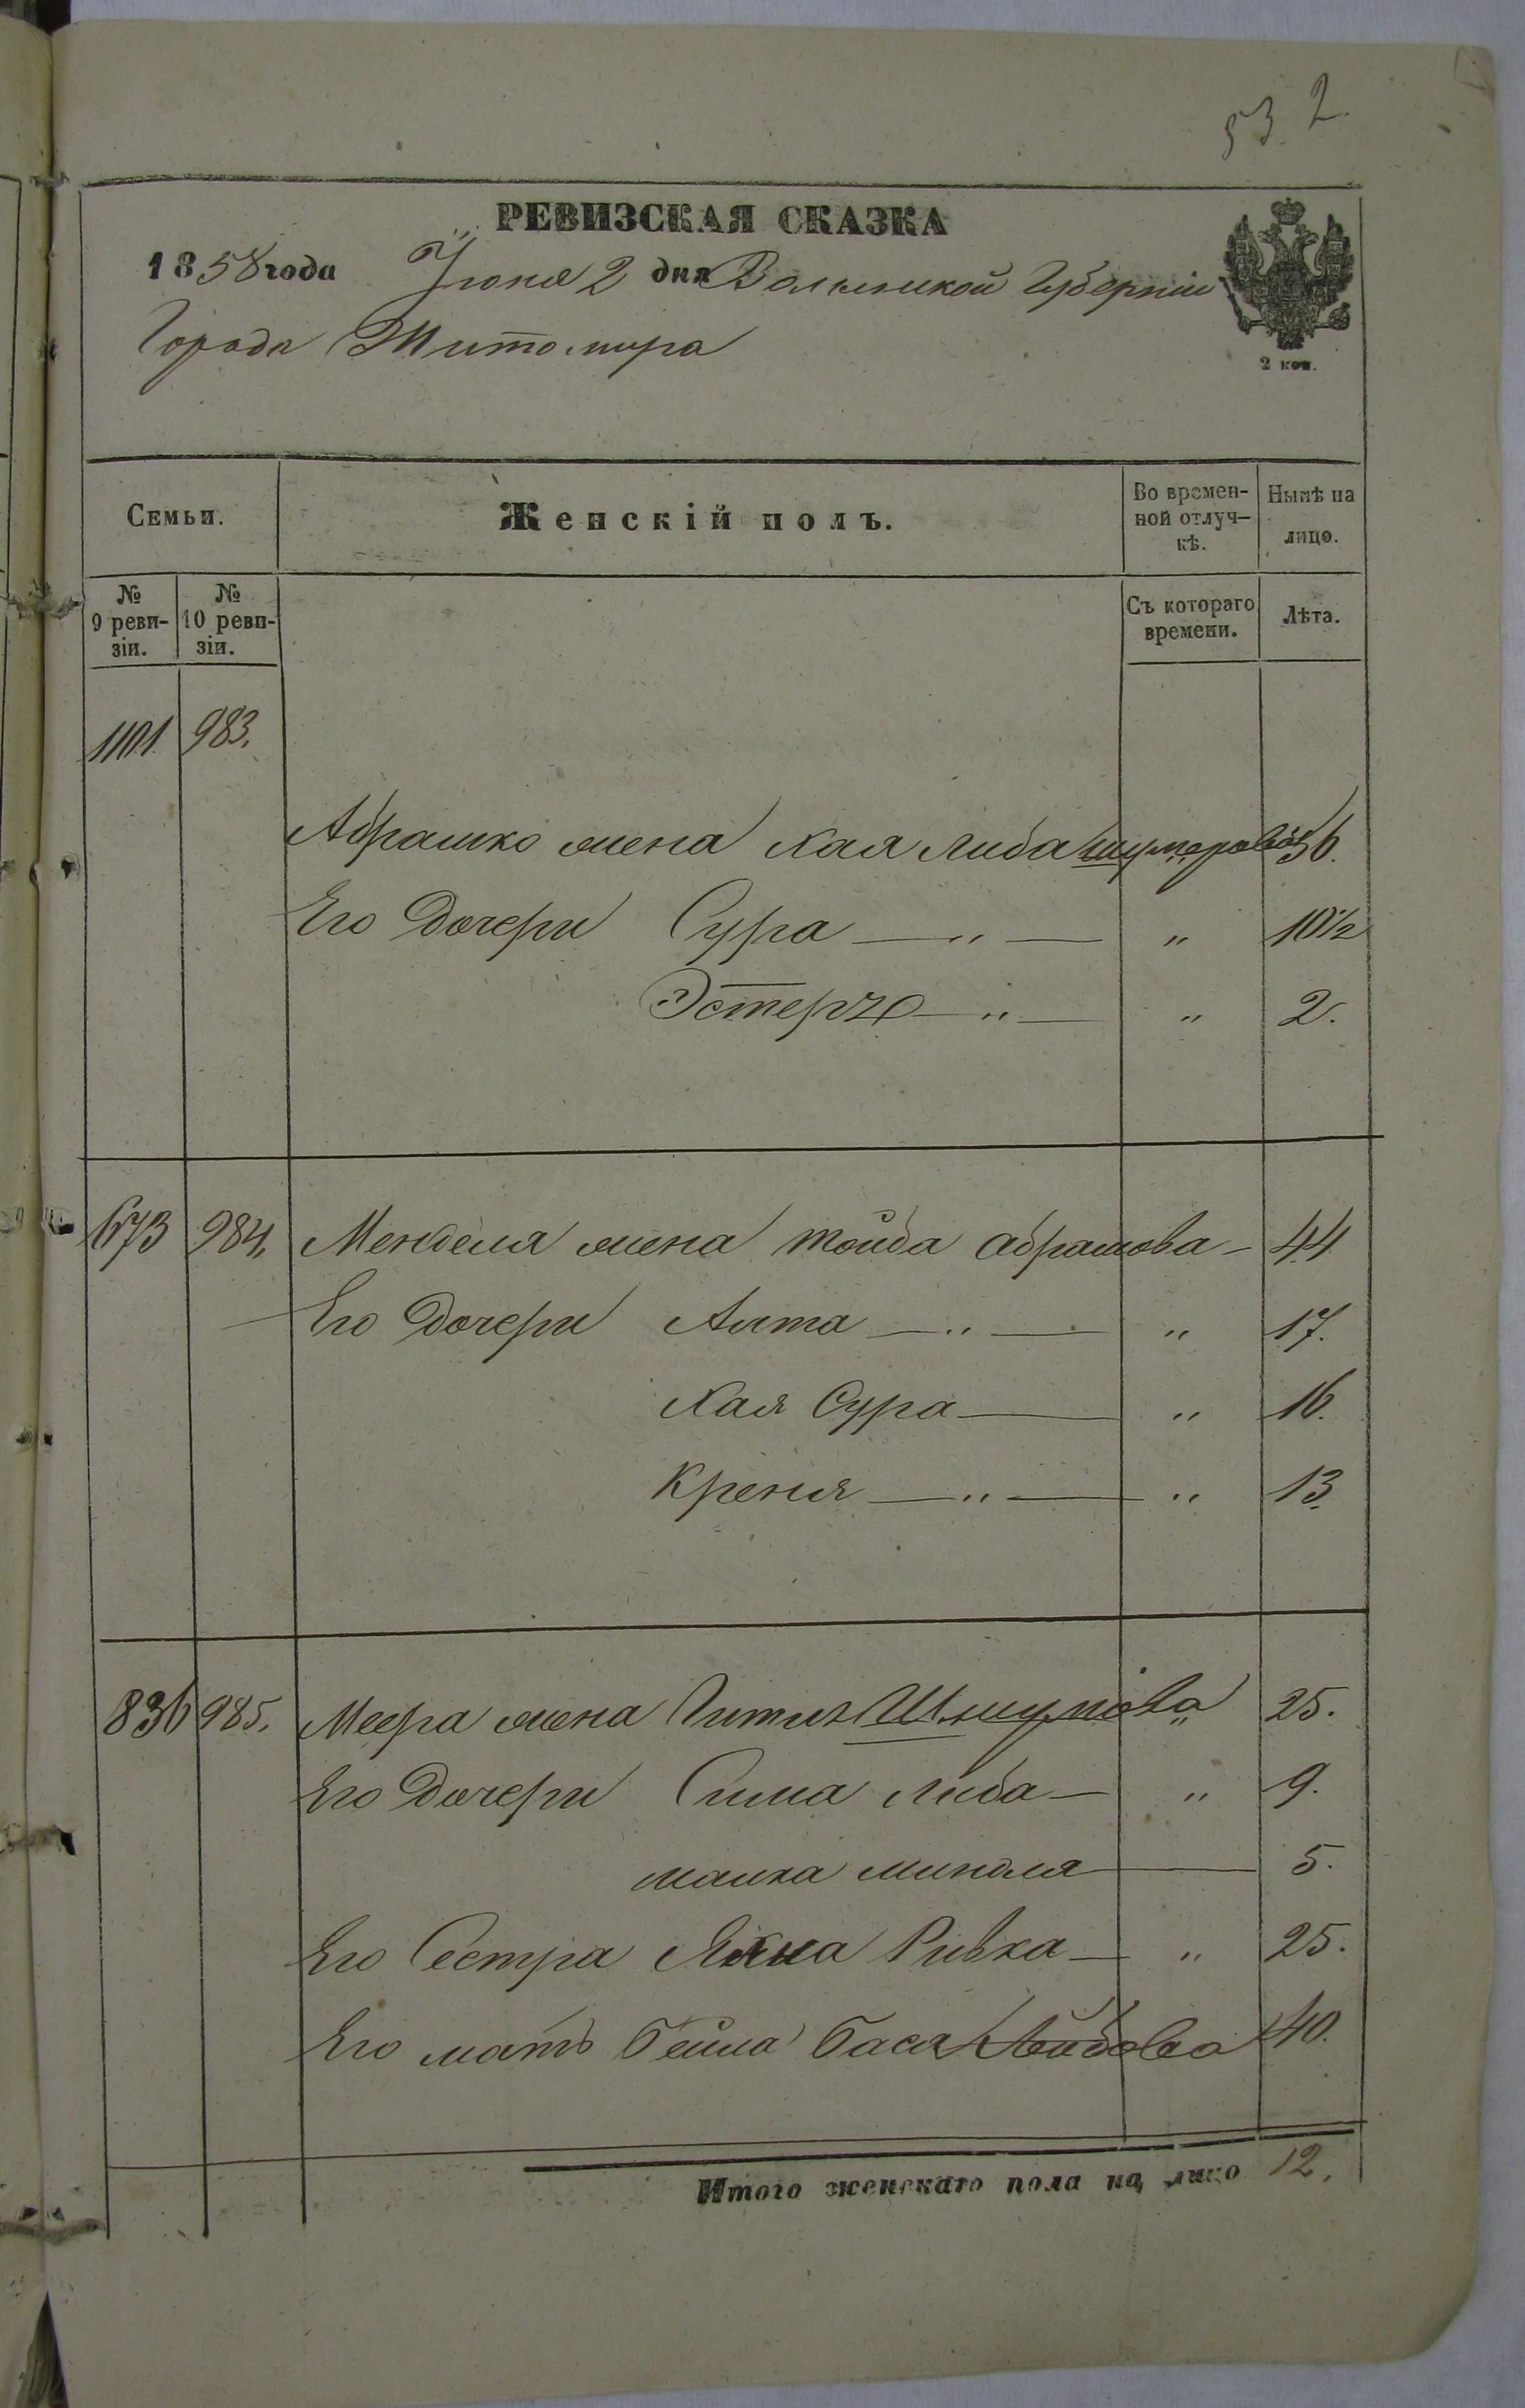 53. 2.
РЕВИЗСКАЯ СКАЗКА
1858 года Іюня 2 дня Волынской Губерніи
Города Житомира
2 коп.
Семьи.
Женскій полъ.
Во времен-
ной отлуч-
кѣ.
Нынѣ на
лицо.
№
9 реви-
зіи.
№
10 реви-
зіи.
Съ котораго
времени.
Лѣта.
1101. 983.
Абрамко жена Хая Либа 36.
Его Дочери Сура — „ — „ 10½
Эстеръ — „ — „ 2.
673 984. Менделя жена тойба абрамова — 44
Его Дочери Алта — „ — „ 17.
Хая Сура — „ 16.
Креня — „ — „ 13.
836 985. Меера жена Гитля 25.
Его Дочери Сима либа — „ 9.
малка миндля — 5.
Его Сестра Ривка — „ 25.
Его мать бейла бася Лейбова 40.
Итого женскаго пола на лицо 12.